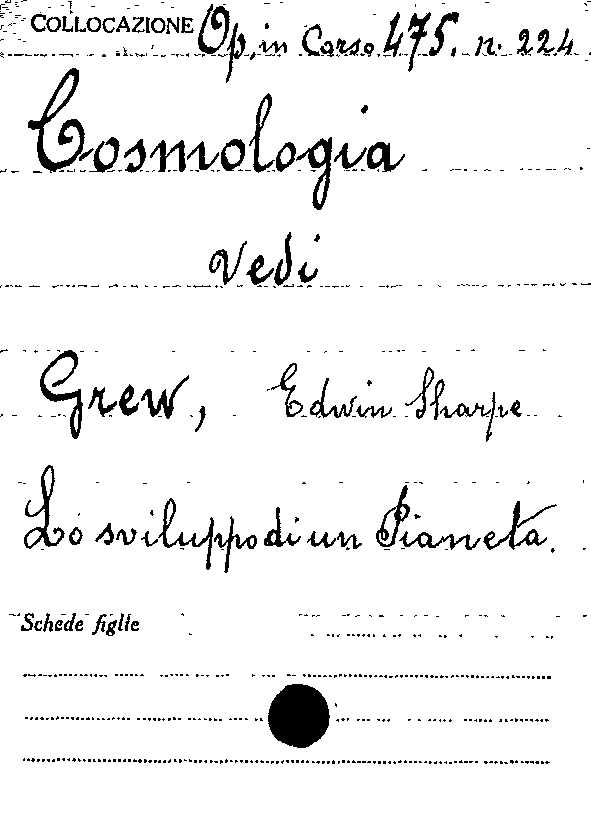 COLLOCAZIONE Op. in Corso 475. n. 224
Cosmologia
Vedi
Grew, Edwin Sharpe
Lo sviluppo di un Pianeta.
Schede figlie